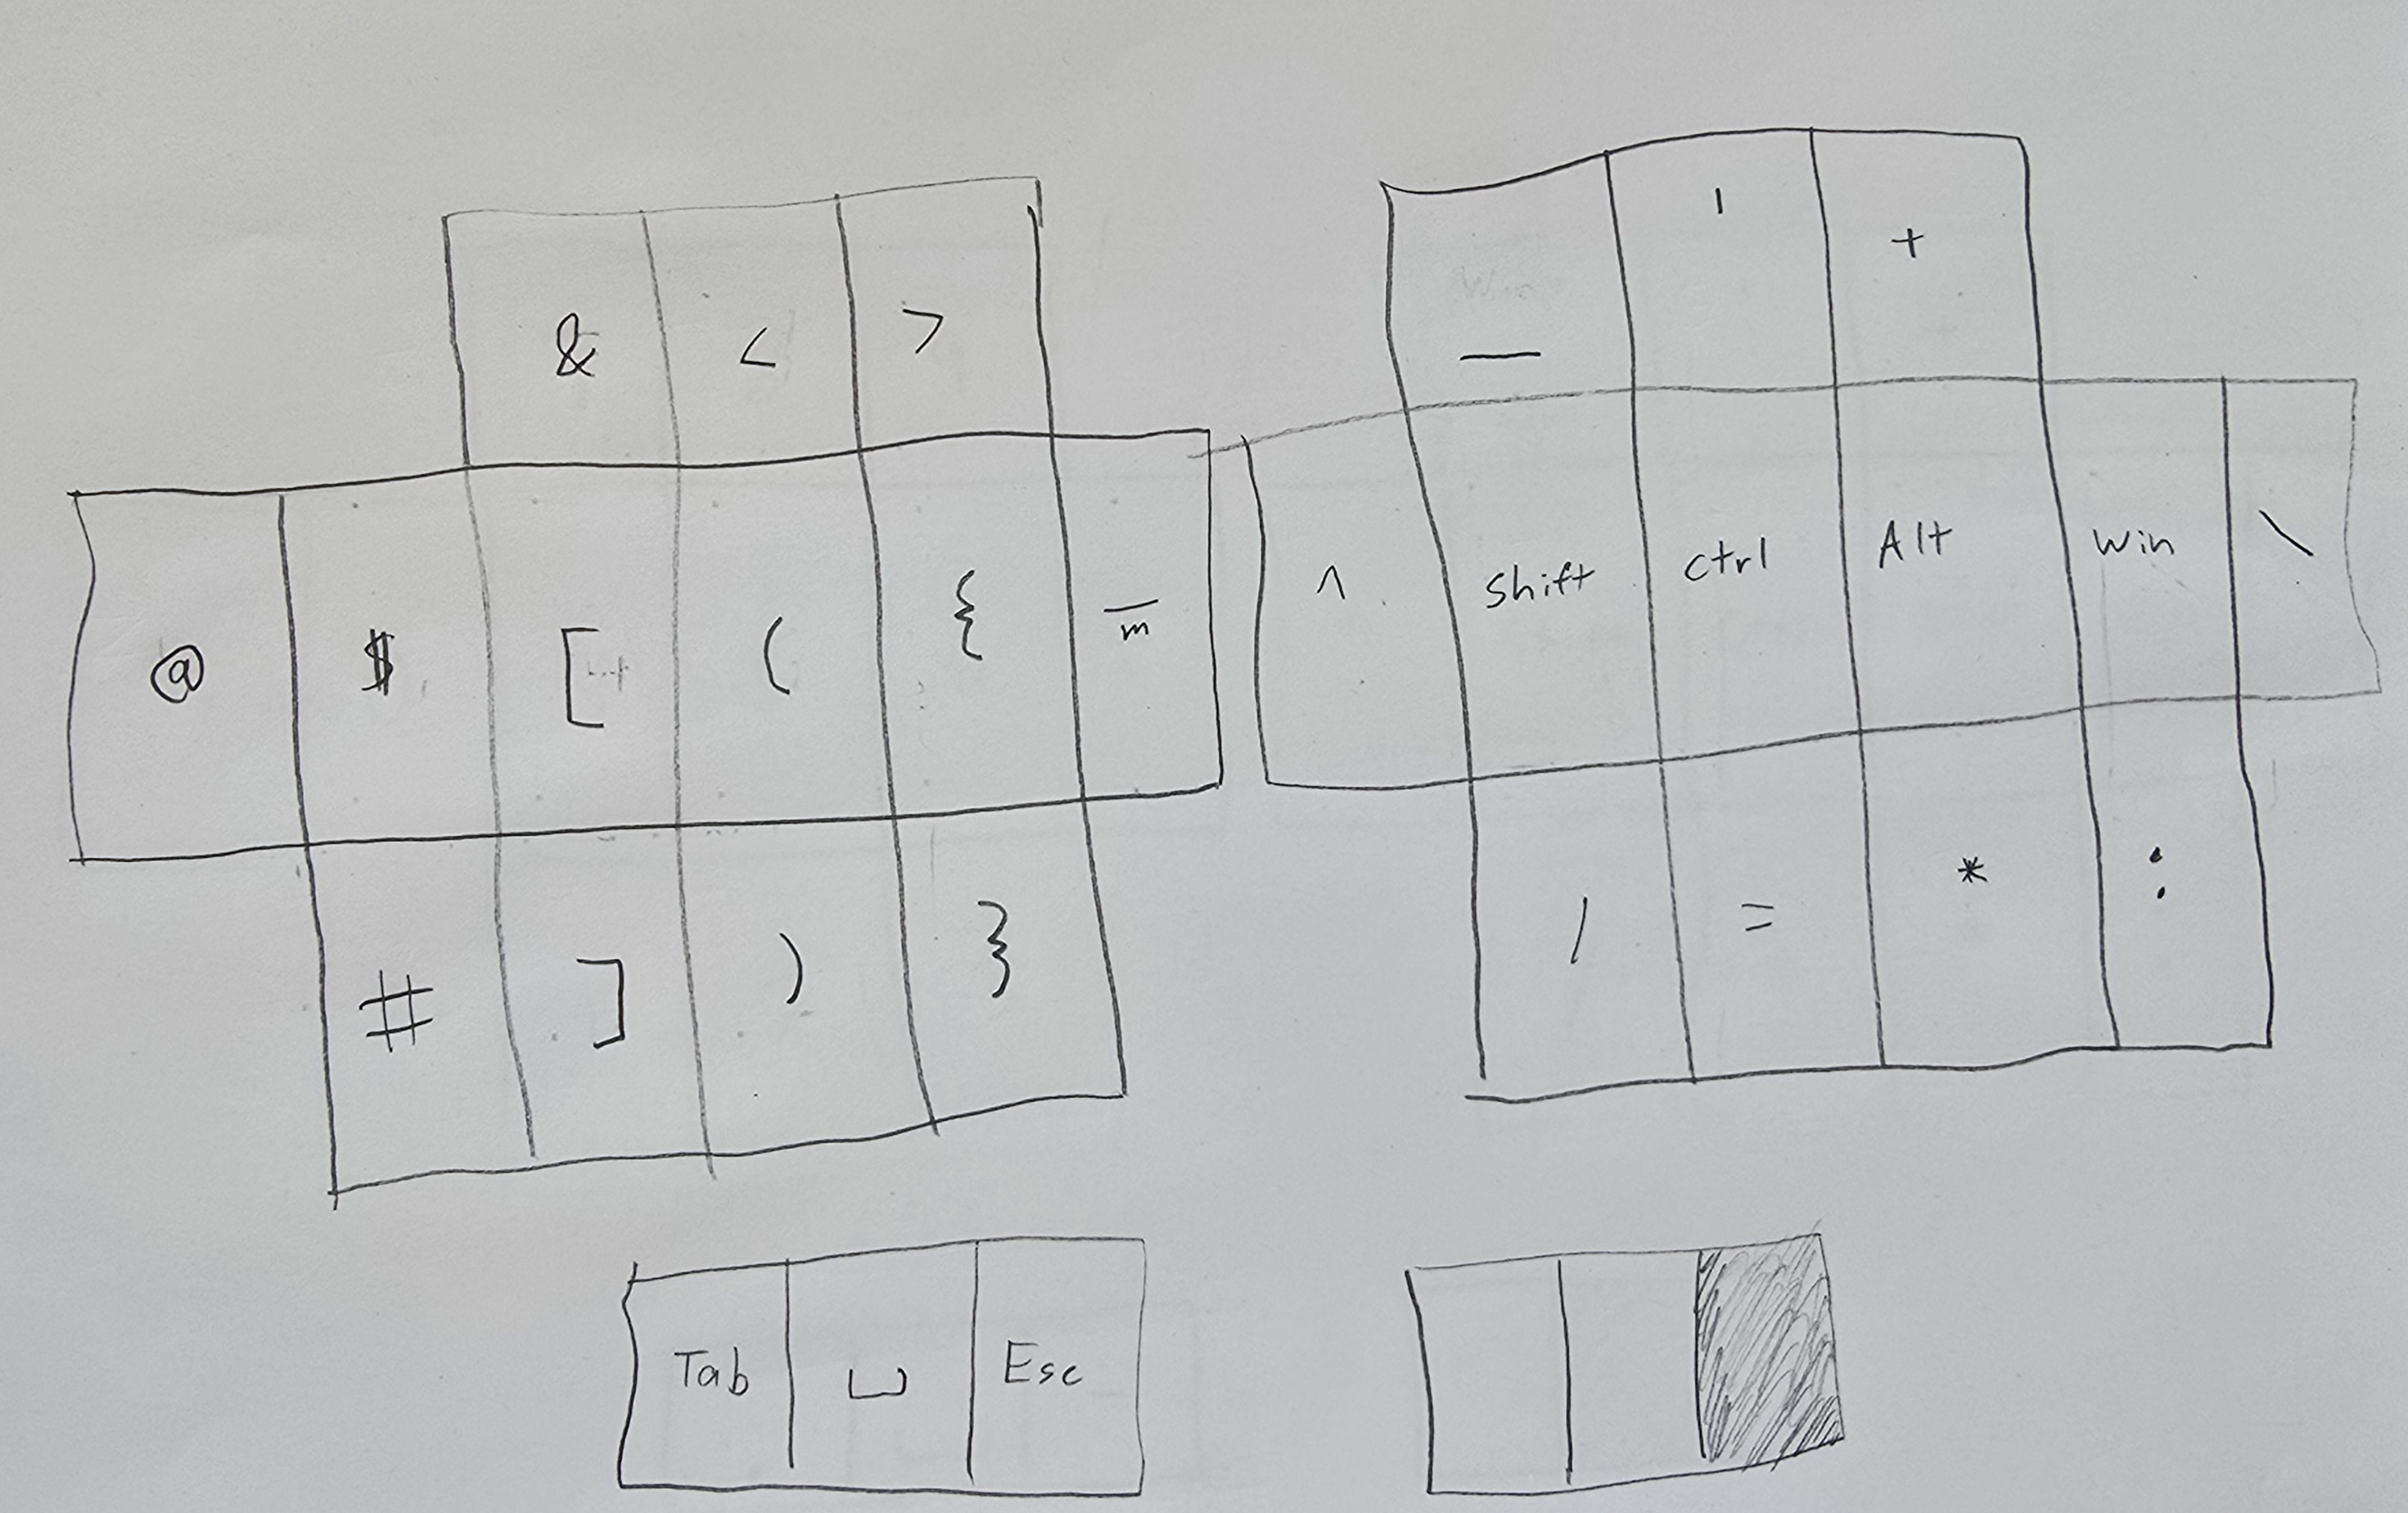 & < >
— ' +
@ $ [ ( { — m
^ Shift Ctrl Alt Win \
# ] ) }
/ = * :
Tab ␣ Esc